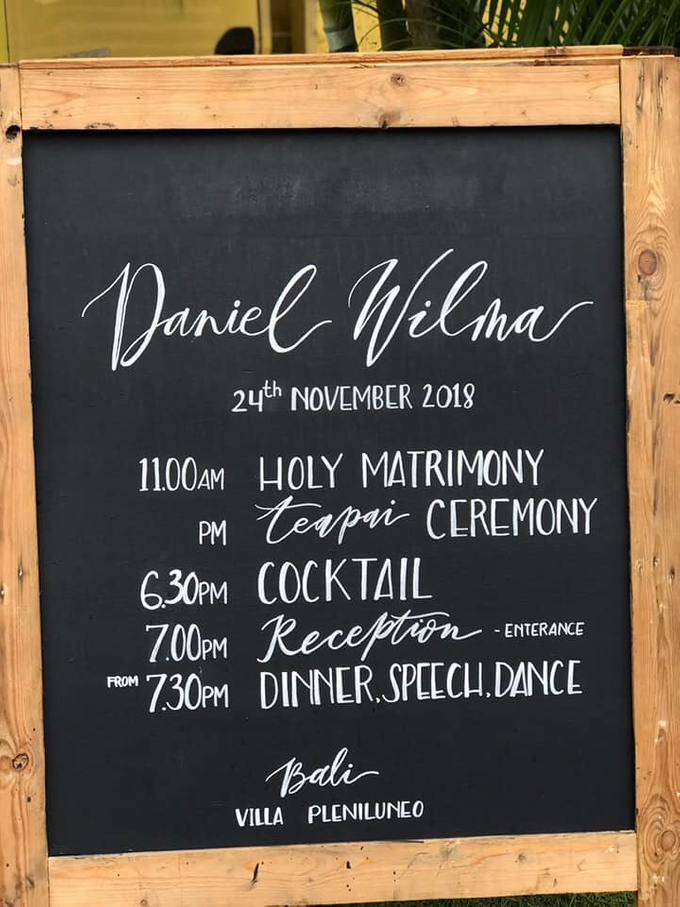 Daniel Wilma
24th NOVEMBER 2018
11.00AM HOLY MATRIMONY
PM teapai CEREMONY
6.30PM COCKTAIL
7.00PM Reception - ENTERANCE
FROM 7.30PM DINNER, SPEECH, DANCE
Bali
VILLA PLENILUNEO